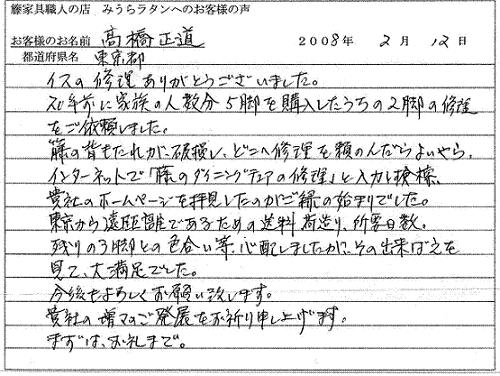 籐家具職人の店 みうらラタンへのお客様の声
お客様のお名前 高橋正道 2008年 2月 12日
都道府県名 東京都
イスの修理ありがとうございました。
20年前に家族の人数分5脚を購入したうちの2脚の修理
をご依頼しました。
籐の背もたれが破損し、どこへ修理を頼のんだらよいやら、
インターネットで「籐のダイニングチェアの修理」と入力し検標、
貴社のホームページを拝見したのがご縁の始まりでした。
東京から遠距離であるための送料荷造り、所要日数。
残りの3脚との色合い等、心配しましたが、その出来ばえを
見て、大満足でした。
今後もよろしくお願い致します。
貴社の増々のご発展をお祈り申し上げます。
まずは、お礼まで。